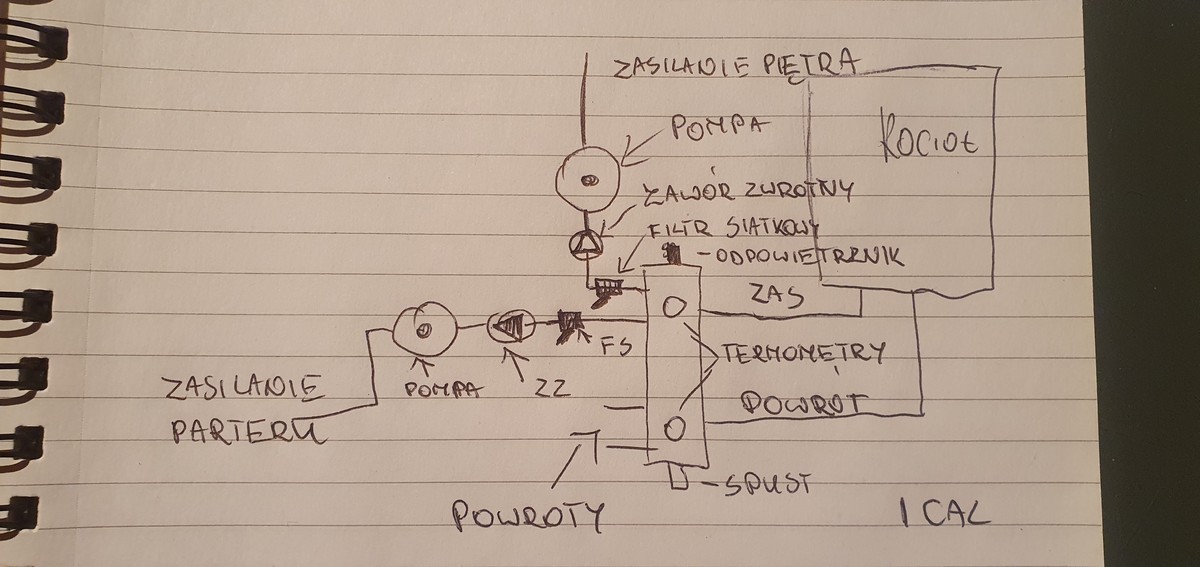 ZASILANIE PIĘTRA
KOCIOŁ
POMPA
ZAWÓR ZWROTNY
FILTR SIATKOWY
-ODPOWIETRZNIK
ZAS
FS
TERMOMETRY
ZASILANIE
PARTERU
POMPA
ZZ
POWRÓT
SPUST
POWROTY
1 CAL